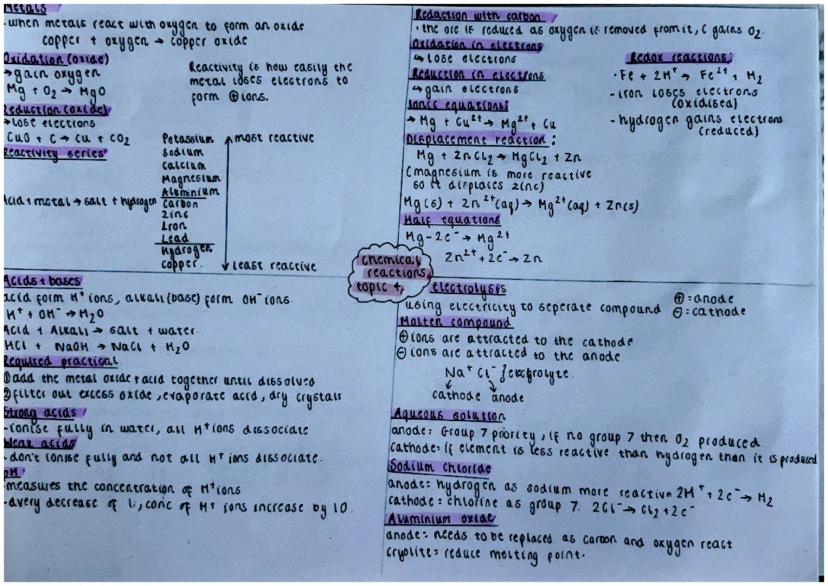 Metals
-when metals react with oxygen to form an oxide
copper + oxygen → copper oxide
Oxidation (oxide)
→gain oxygen
Mg + O₂ → MgO
Reduction (oxide)
→lose electrons
CuO + C → Cu + CO₂
Reactivity series
Reactivity is how easily the
metal loses electrons to
form ⊕ ions.
Acid + metal → salt + hydrogen
Potassium
Sodium
Calcium
Magnesium
Aluminium
Carbon
Zinc
Iron
Lead
Hydrogen
Copper.
most reactive
least reactive
Reduction with carbon
·the ore is reduced as oxygen is removed from it, C gains O₂.
Oxidation in electrons
↳ lose electrons
Reduction in electrons
↳ gain electrons
Ionic equations:
→ Mg + Cu²⁺ → Mg²⁺ + Cu
Displacement reaction:
Mg + ZnCl₂ → MgCl₂ + Zn
(magnesium is more reactive
so it displaces zinc)
Mg(s) + Zn²⁺(aq) → Mg²⁺(aq) + Zn(s)
Half equations
Mg-2e⁻ → Mg²⁺
Zn²⁺+2e⁻ → Zn
Redox reactions:
·Fe + 2H⁺ → Fe²⁺ + H₂
-iron loses electrons
(oxidised)
-hydrogen gains electrons
(reduced)
chemical
reactions,
topic 4,
Acids + bases
acid form H⁺ ions, alkali (base) form OH⁻ ions
H⁺ + OH⁻ → H₂O
Acid + Alkali → salt + water
HCl + NaOH → NaCl + H₂O
Required practical
①add the metal oxide + acid together until dissolved
②filter out excess oxide, evaporate acid, dry crystals
Strong acids
-ionise fully in water, all H⁺ ions dissociate
Weak acids
-don't ionise fully and not all H⁺ ions dissociate.
pH
-measures the concentration of H⁺ ions
-avery decrease of 1, conc of H⁺ ions increase by 10.
Electrolysis
using electricity to seperate compound
⊕ = anode
⊖ = cathode
Molten compound
⊕ ions are attracted to the cathode
⊖ ions are attracted to the anode
Na⁺ Cl⁻ } electrolyte.
cathode anode
Aqueous solution
anode = Group 7 priority, if no group 7 then O₂ produced.
cathode = if element is less reactive than hydrogen than it is produced
Sodium chloride
anode = hydrogen as sodium more reactive 2H⁺ + 2e⁻ → H₂
cathode = chlorine as group 7. 2Cl⁻ → Cl₂ + 2e⁻
Aluminium oxide
anode = needs to be replaced as carbon and oxygen react
cryolite = reduce melting point.